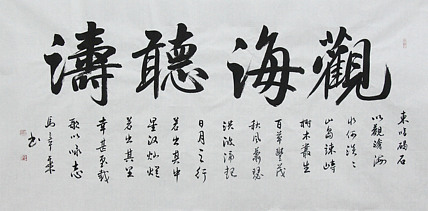 觀海聽濤
東臨碣石
以觀滄海
水何澹澹
山島竦峙
樹木叢生
百草豐茂
秋風蕭瑟
洪波涌起
日月之行
若出其中
星漢燦爛
若出其里
幸甚至哉
歌以咏志
书